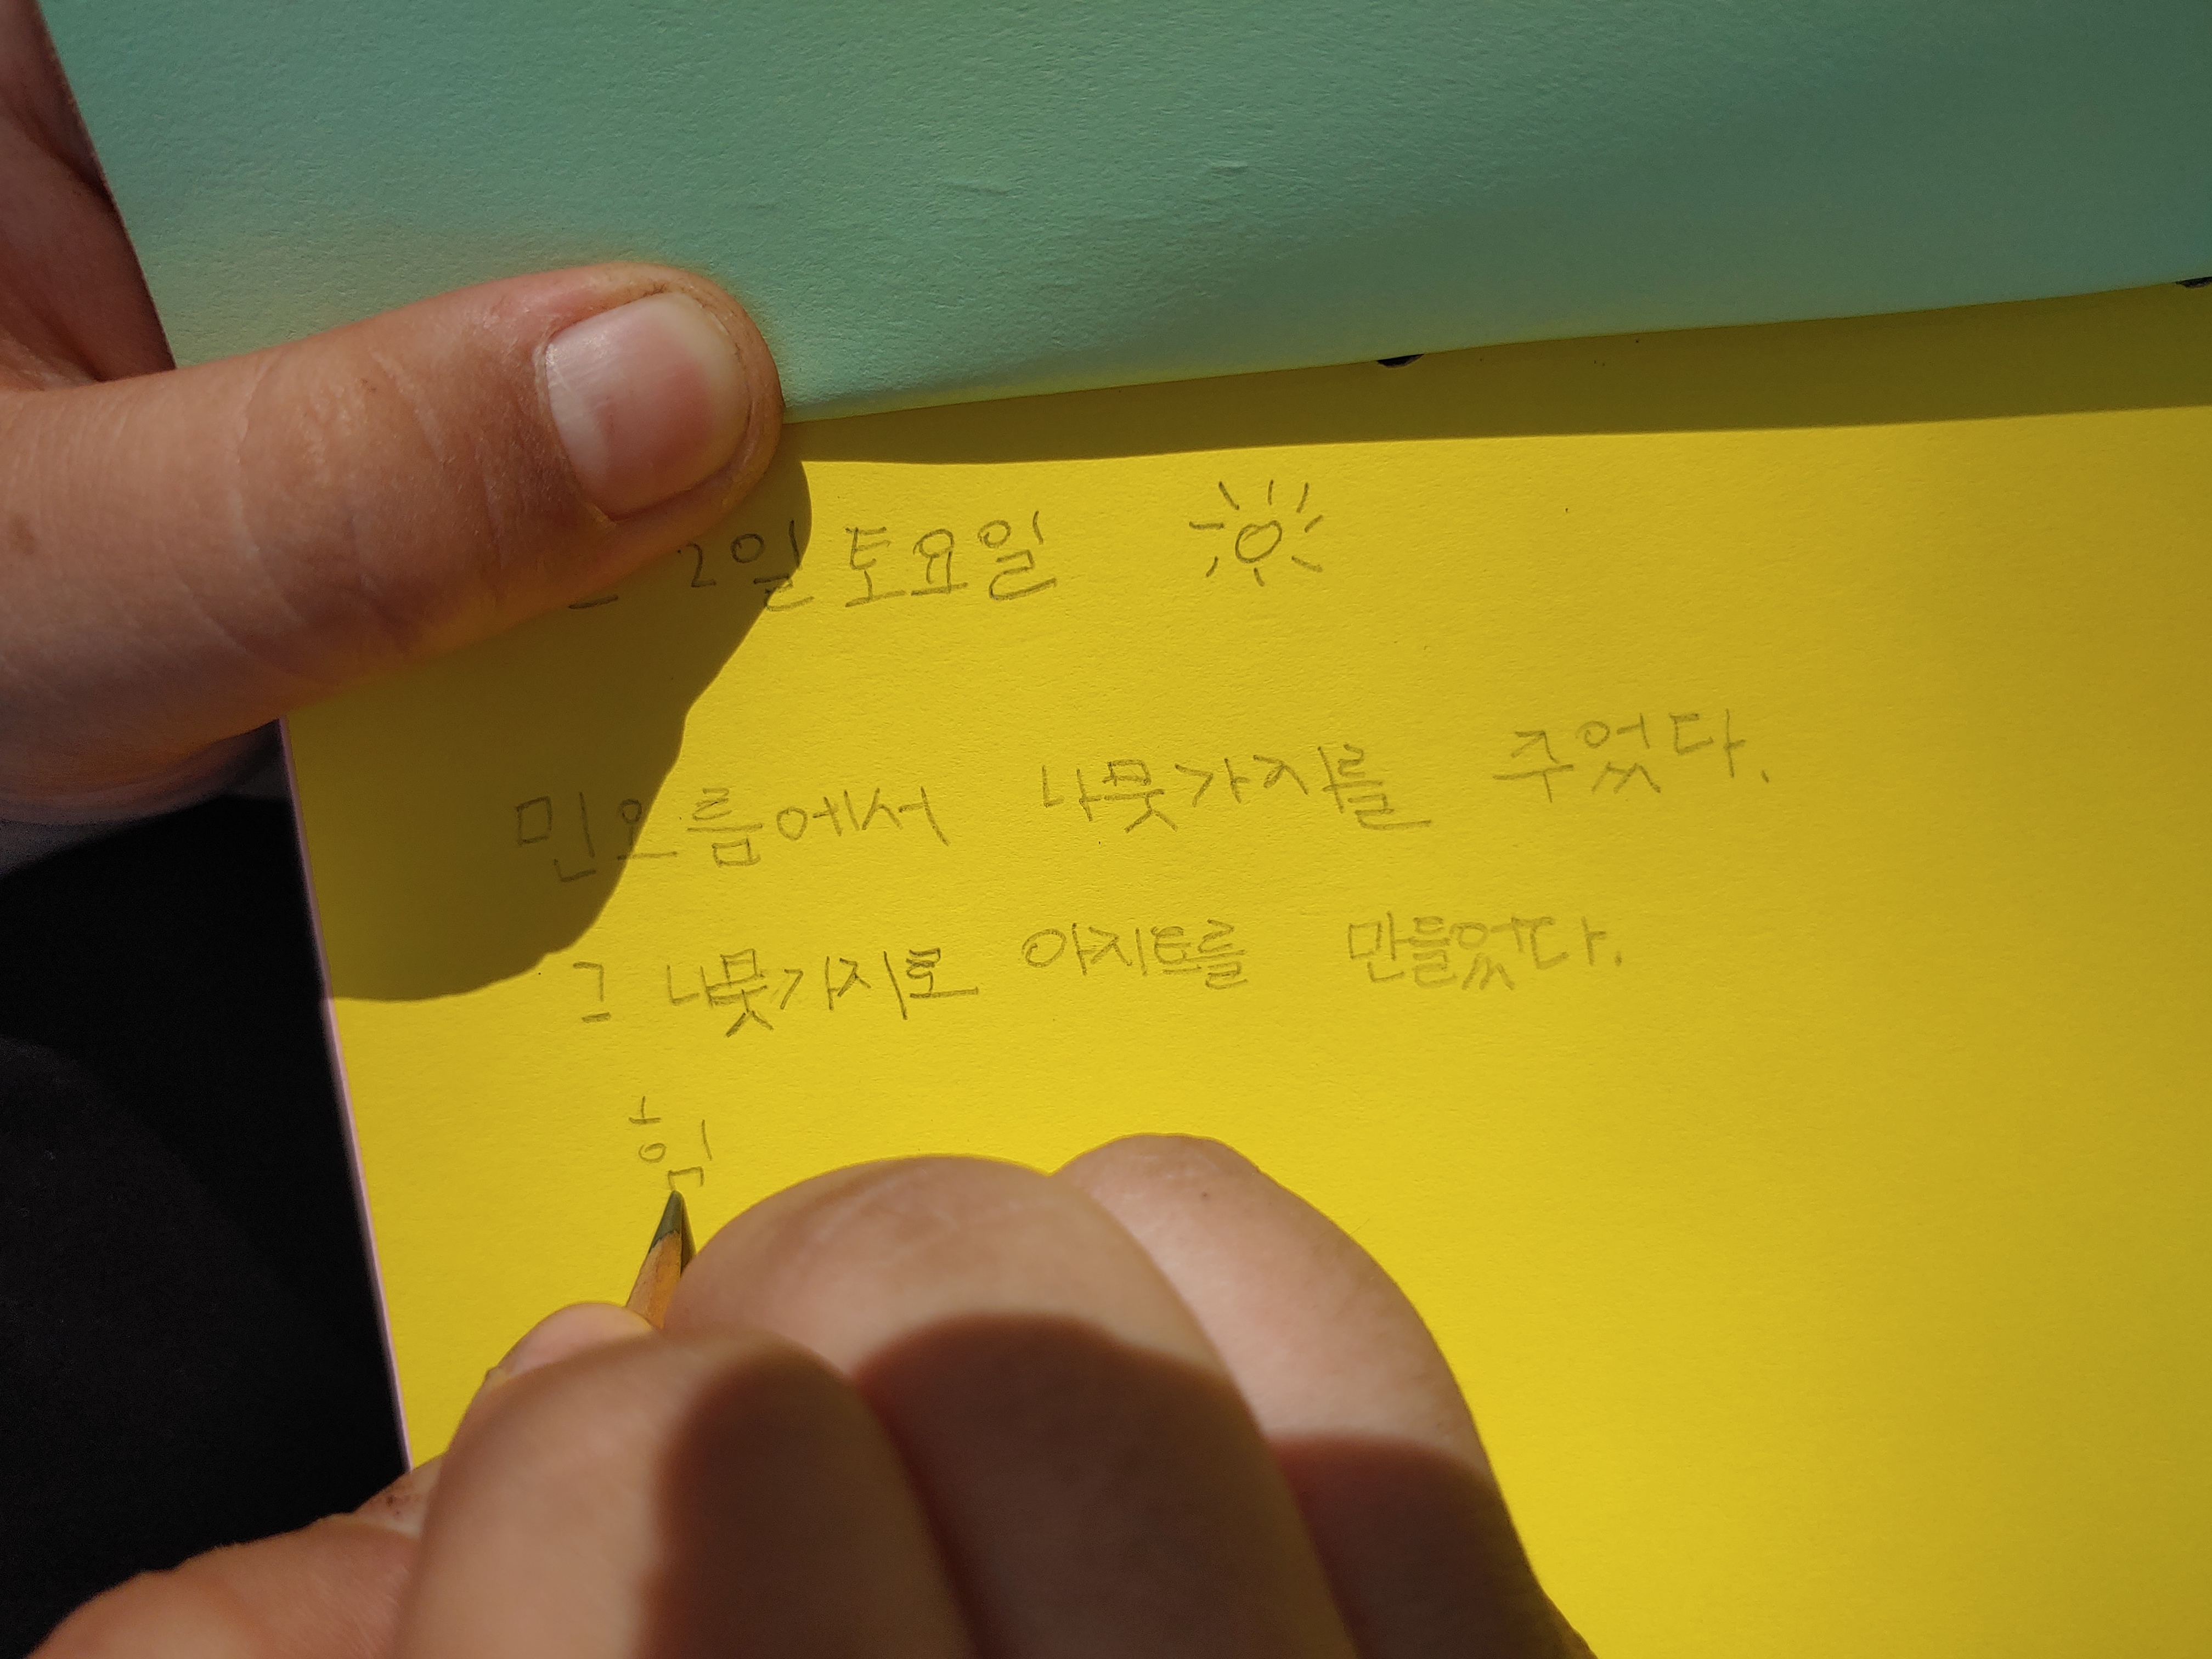 2일 토요일
민오름에서 나뭇가지를 주었다.
그 나뭇가지로 아지트를 만들었다.
힘